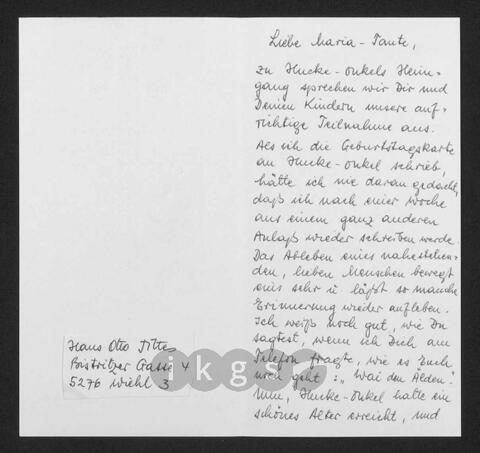 Liebe Maria-Tante,
zu Hucke-Onkels Heim-
gang sprechen wir Dir und
Deinen Kindern unsere auf-
richtige Teilnahme aus.
Als ich die Geburtstagskarte
an Hucke-Onkel schrieb,
hätte ich nie daran gedacht,
daß ich nach einer Woche
aus einem ganz anderen
Anlaß wieder schreiben werde.
Das Ableben eines nahestehen-
den, lieben Menschen bewegt
eins sehr u. läßt so manche
Erinnerung wieder aufleben.
Ich weiß noch gut, wie Du
sagtest, wenn ich Dich am
Telefon fragte, wie es Euch
noch geht: "Wai den Älden."
Nun, Hucke-Onkel hatte ein
schönes Alter erreicht, und
Hans Otto Tittes
Bistritzer Gasse 4
5276 Wiehl 3
ikgs